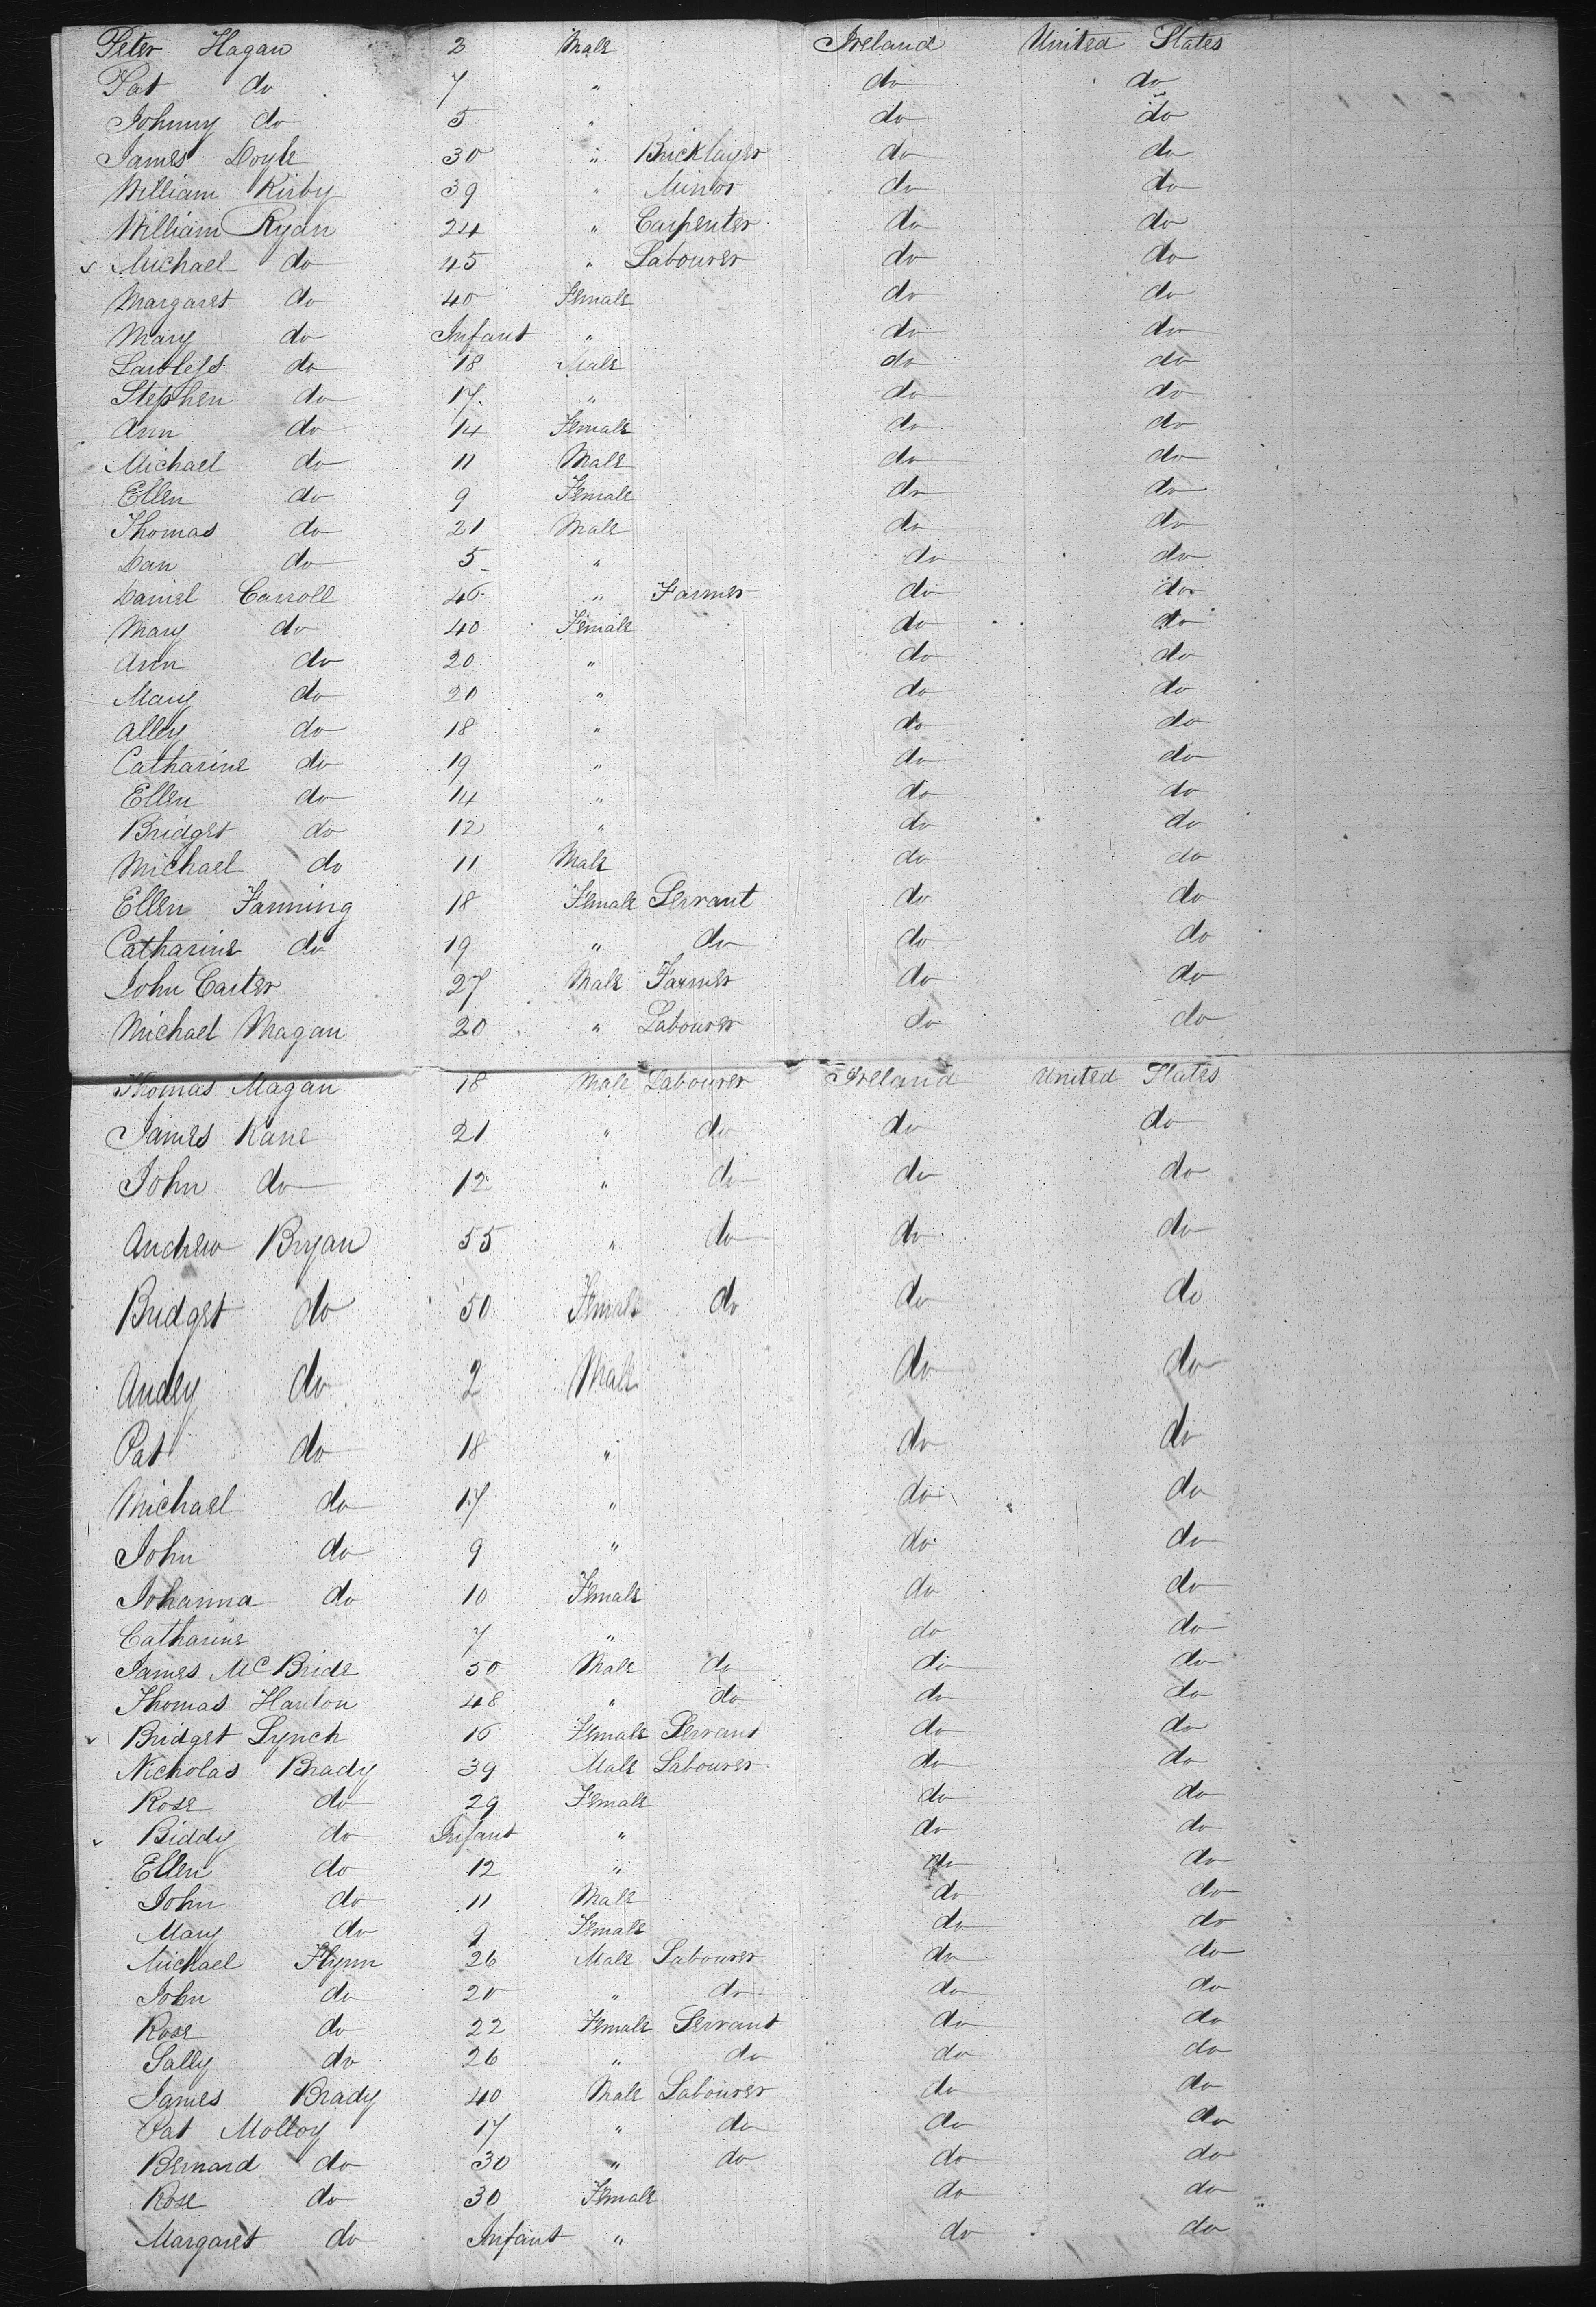 Peter Hagan 2 Male Ireland United States
Pat do 7 " do do
Johnny do 5 " do do
James Doyle 30 " Bricklayer do do
William Kirby 39 " Minor do do
William Ryan 24 " Carpenter do do
Michael do 45 " Labourer do do
Margaret do 40 Female do do
Mary do Infant " do do
Lawless do 18 Male do do
Stephen do 17 " do do
Ann do 14 Female do do
Michael do 11 Male do do
Ellen do 9 Female do do
Thomas do 21 Male do do
Dan do 5 " do do
Daniel Carroll 46 " Farmer do do
Mary do 40 Female do do
Ann do 20 " do do
Mary do 20 " do do
Alley do 18 " do do
Catharine do 19 " do do
Ellen do 14 " do do
Bridget do 12 " do do
Michael do 11 Male do do
Ellen Fanning 18 Female Servant do do
Catharine do 19 " do do do
John Carter 27 Male Farmer do do
Michael Magan 20 " Labourer do do
Thomas Magan 18 Male Labourer Ireland United States
James Kane 21 " do do do
John do 12 " do do do
Andrew Bryan 55 " do do do
Bridget do 50 Female do do do
Andy do 2 Male do do
Pat do 18 " do do
Michael do 17 " do do
John do 9 " do do
Johanna do 10 Female do do
Catharine 7 " do do
James McBride 50 Male do do do
Thomas Hanlon 48 " do do do
Bridget Lynch 16 Female Servant do do
Nicholas Brady 39 Male Labourer do do
Rose do 29 Female do do
Biddy do Infant " do do
Ellen do 12 " do do
John do 11 Male do do
Mary do 9 Female do do
Michael Flynn 26 Male Labourer do do
John do 20 " do do do
Rose do 22 Female Servant do do
Sally do 26 " do do do
James Brady 40 Male Labourer do do
Pat Molloy 17 " do do do
Bernard do 30 " do do do
Rose do 30 Female do do
Margaret do Infant " do do